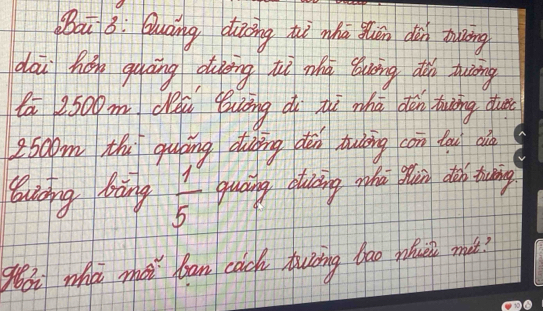 Bài 3: Quãng đường từ nhà Hiền đến trường
dài hơn quãng đường từ nhà Cường đến trường
là 2500 m. Nếu Cường đi từ nhà đến trường được
2500m thì quãng đường đến trường còn lại của
Cường bằng 1/5 quãng đường nhà Hiền đến trường.
Hỏi nhà mỗi bạn cách trường bao nhiêu mét?